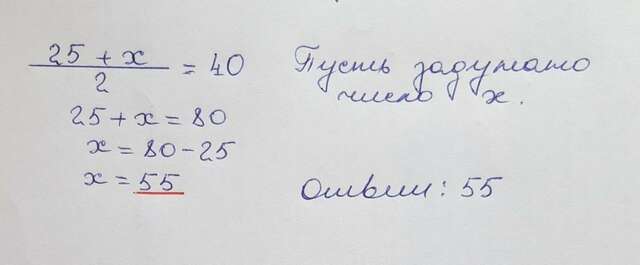 25 + x / 2 = 40
25 + x = 80
x = 80 - 25
x = 55
Пусть задумано
число x.
Ответ: 55